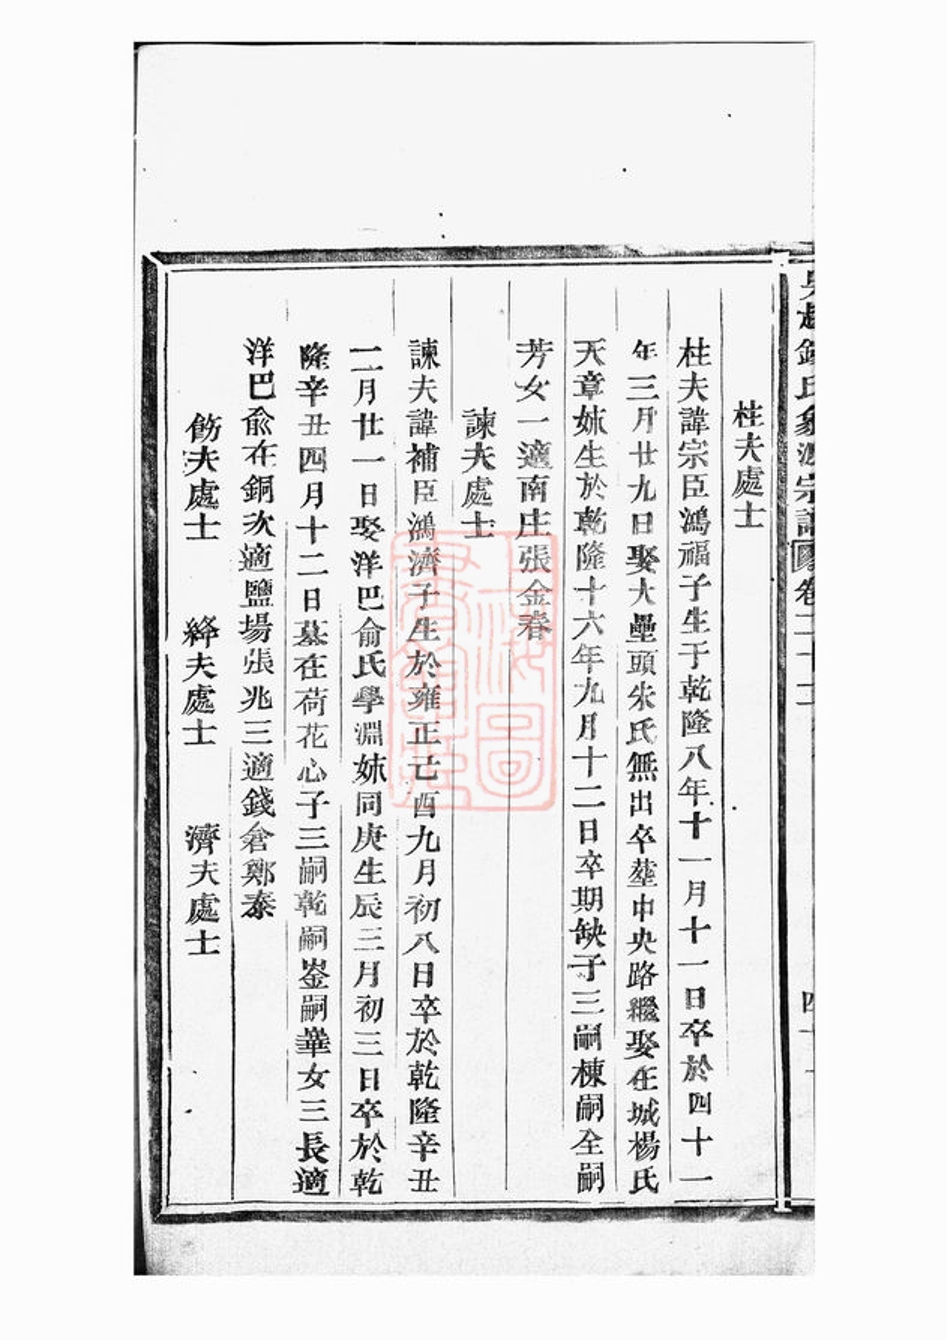 吳越錢氏象派宗譜 卷二十二 四十一
柱夫處士
柱夫諱宗臣鴻福子生于乾隆八年十一月十一日卒於四十一
年三月廿九日娶大壘頭朱氏無出卒塟中央路繼娶在城楊氏
天章姊生於乾隆十六年九月十二日卒期缺子三嗣棟嗣全嗣
芳女一適南庄張金春
諫夫處士
諫夫諱補臣鴻濟子生於雍正己酉九月初八日卒於乾隆辛丑
二月廿一日娶洋巴俞氏學淵妹同庚生辰三月初三日卒於乾
隆辛丑四月十二日墓在荷花心子三嗣乾嗣崟嗣華女三長適
洋巴俞在銅次適鹽場張兆三適錢倉鄭泰
飭夫處士 絳夫處士 濟夫處士
上海圖書館藏